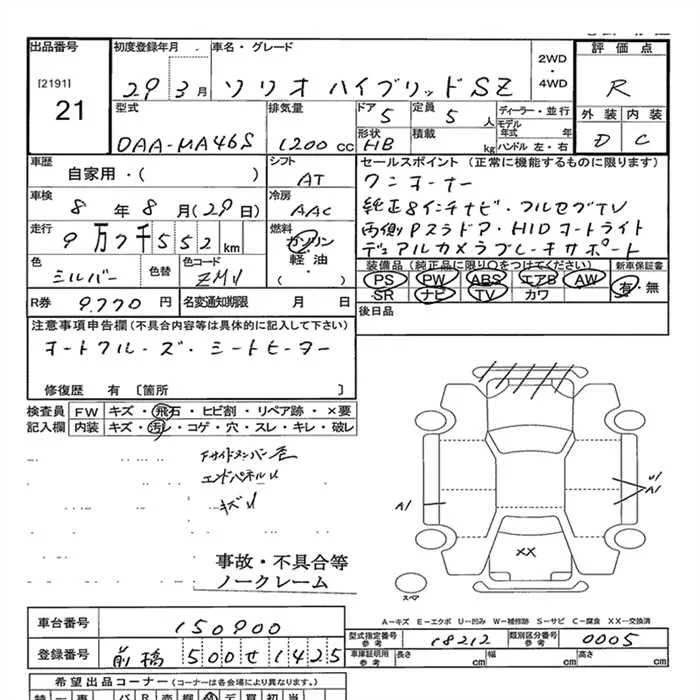 出品番号
[2191]
21
初度登録年月
29 3月
車名・グレード
ソリオ ハイブリッドSZ
2WD
・
4WD
評価点
R
外装 内装
D C
型式
DAA-MA46S
排気量
1200 CC
ドア 5
定員 5 人
形状 HB
積載 kg
ディーラー・並行
モデル年式 年
ハンドル 左・右
車歴
自家用・( )
シフト
AT
車検
8 年 8 月(29日)
冷房
AAC
走行
9万7千552km
燃料
ガソリン
・
軽油
・
( )
色
シルバー
色替
色コード
ZMV
R券 9.770円
名変通知期限 月 日
セールスポイント(正常に機能するものに限ります)
ワンオーナー
純正8インチナビ・フルセグTV
両側Pスラドア・HIDオートライト
デュアルカメラブレーキサポート
装備品(純正品に限り○をつけてください)
PS PW ABS エアB AW
SR ナビ TV カワ
新車保証書
有・無
後日品
注意事項申告欄(不具合内容等は具体的に記入して下さい)
オートクルーズ・シートヒーター
修復歴 有 〔箇所 〕
検査員記入欄
FW キズ・飛石・ヒビ割・リペア跡・×要
内装 キズ・汚レ・コゲ・穴・スレ・キレ・破レ
エンドパネルU
キズU
事故・不具合等
ノークレーム
A1
U1
A1
XX
スペア
A-キズ E-エクボ U-凹み W-補修跡 S-サビ C-腐食 XX-交換済
車台番号 150900
登録番号 前橋 500 せ 1425
型式指定番号 参考 18212
類別区分番号 参考 0005
車庫証明用 参考 長さ cm 幅 cm 高さ cm
希望出品コーナー(コーナーは各会場により異なります。)